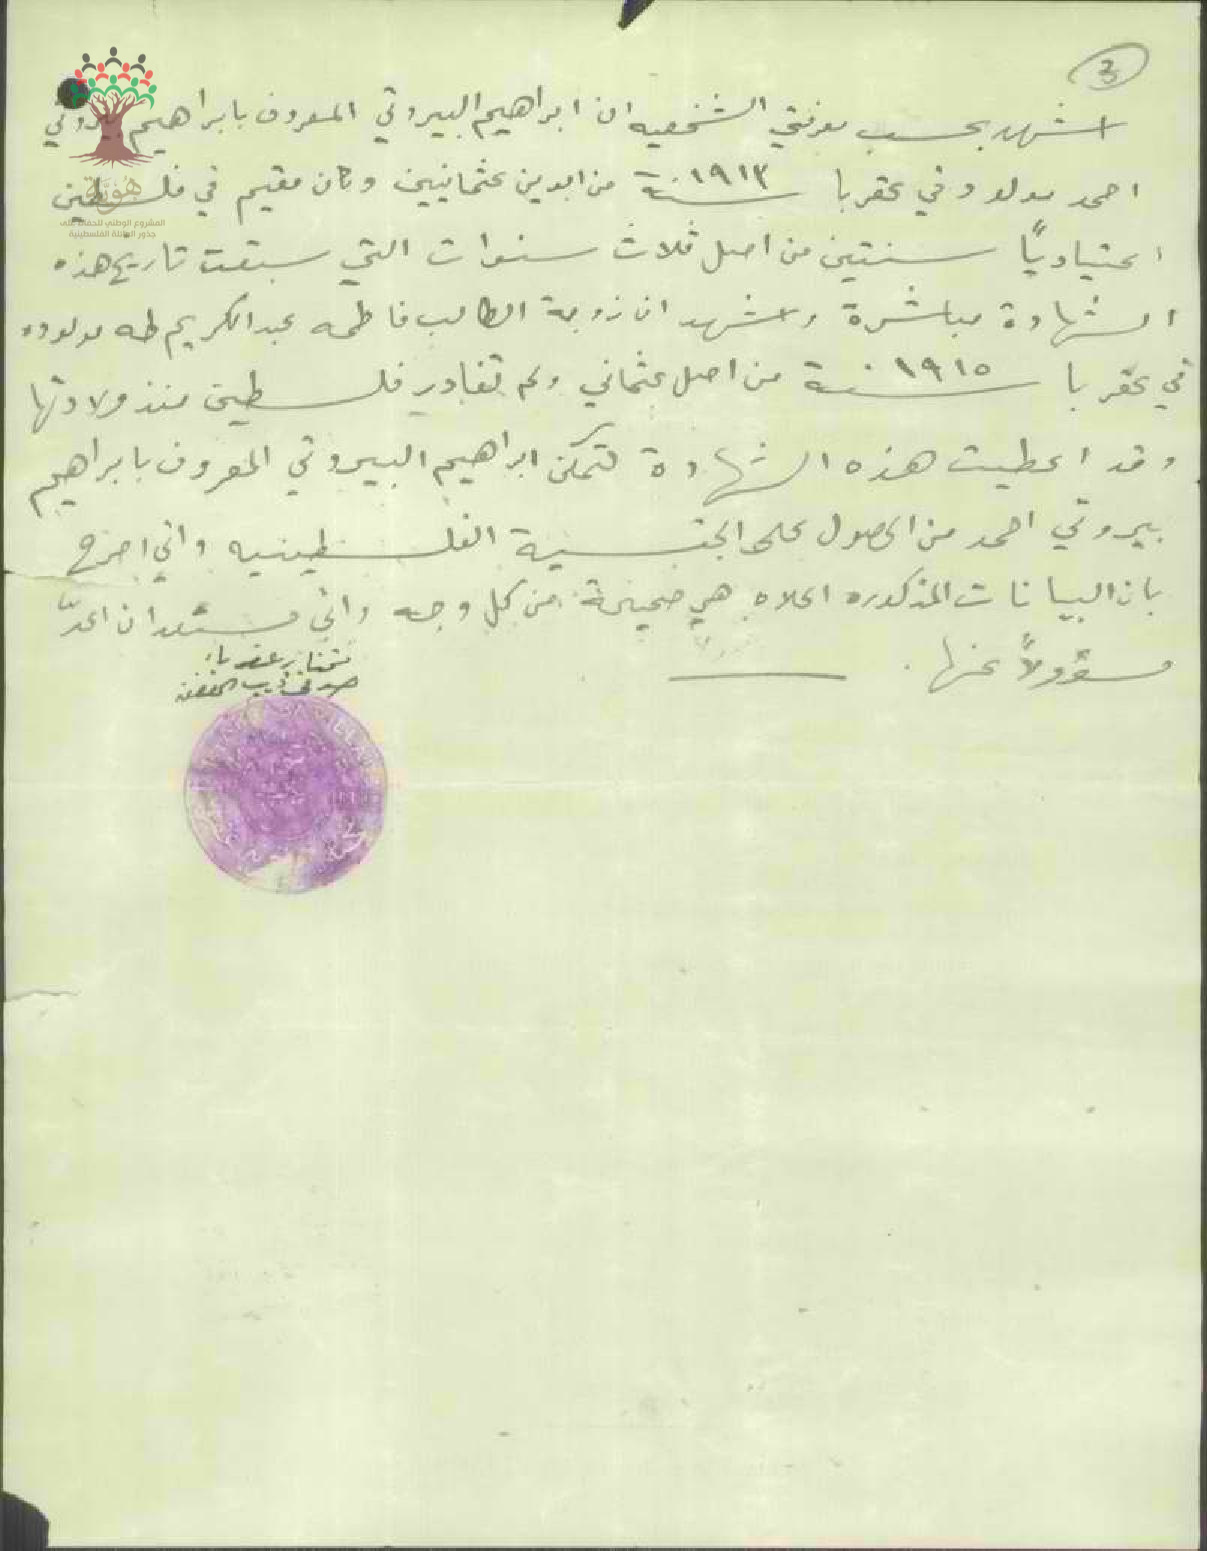 3
اشهد بحسب معرفتي الشخصيه ان ابراهيم البيروتي المعروف بابراهيم بيروتي
احمد مولود في عقربا سنة ١٩١٣ من ابوين عثمانيين وكان مقيم في فلسطين
اعتيادياً سنتين من اصل ثلاث سنوات التي سبقت تاريخ هذه
الشهادة مباشرة واشهد ان زوجة الطالب فاطمه عبدالكريم طه مولوده
في عقربا سنة ١٩١٥ من اصل عثماني ولم تغادر فلسطين منذ ولادتها
وقد اعطيت هذه الشهادة لتمكن ابراهيم البيروتي المعروف بابراهيم
بيروتي احمد من الحصول على الجنسية الفلسطينيه واني اصرح
بان البيانات المذكوره اعلاه هي صحيحة من كل وجه واني مستعد ان اعدّ
مسؤولاً عنها.
مختار عقربا
هوية
المشروع الوطني للحفاظ على
جذور العائلة الفلسطينية